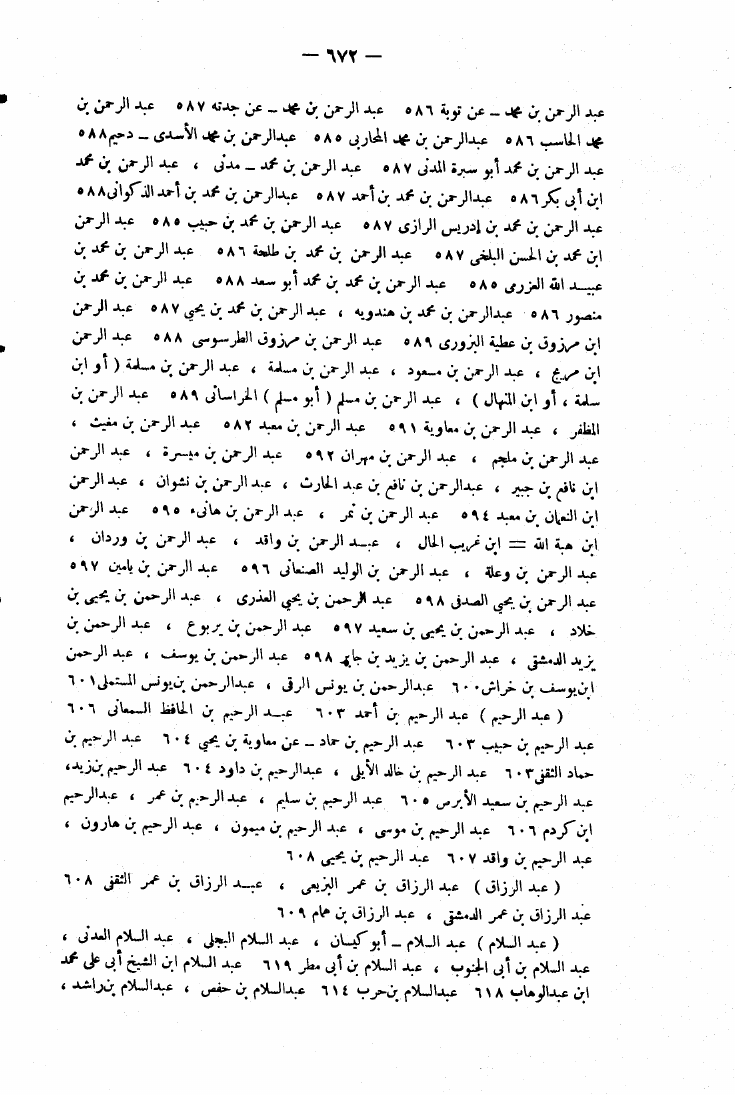 — ٦٧٢ —
عبد الرحمن بن محمد — عن توبة ٥٨٦ عبد الرحمن بن محمد — عن جدته ٥٨٧ عبد الرحمن بن
محمد الحاسب ٥٨٦ عبدالرحمن بن محمد المحاربى ٥٨٥ عبدالرحمن بن محمد الأسدى — دحيم ٥٨٨
عبد الرحمن بن محمد أبو سبرة المدنى ٥٨٧ عبد الرحمن بن محمد — مدنى ، عبد الرحمن بن محمد
ابن أبى بكر ٥٨٦ عبدالرحمن بن محمد بن أحمد ٥٨٧ عبدالرحمن بن محمد بن أحمد الذكوانى ٥٨٨
عبد الرحمن بن محمد بن إدريس الرازى ٥٨٧ عبد الرحمن بن محمد بن حبيب ٥٨٥ عبد الرحمن
ابن محمد بن الحسن البلخى ٥٨٧ عبد الرحمن بن محمد بن طلحة ٥٨٦ عبد الرحمن بن محمد بن
عبيد الله العزرى ٥٨٥ عبد الرحمن بن محمد بن محمد أبو سعد ٥٨٨ عبد الرحمن بن محمد بن
منصور ٥٨٦ عبدالرحمن بن محمد بن هندويه ، عبد الرحمن بن محمد بن يحيى ٥٨٧ عبد الرحمن
ابن مرزوق بن عطية البزورى ٥٨٩ عبد الرحمن بن مرزوق الطرسوسى ٥٨٨ عبد الرحمن
ابن مريح ، عبد الرحمن بن مسعود ، عبد الرحمن بن مسلمة ، عبد الرحمن بن مسلمة ( أو ابن
سلمة ، أو ابن المنهال ) ، عبد الرحمن بن مسلم ( أبو مسلم ) الخراسانى ٥٨٩ عبد الرحمن بن
المظفر ، عبد الرحمن بن معاوية ٥٩١ عبد الرحمن بن معبد ٥٨٢ عبد الرحمن بن مغيث ،
عبد الرحمن بن ملجم ، عبد الرحمن بن مهران ٥٩٢ عبد الرحمن بن ميسرة ، عبد الرحمن
ابن نافع بن جبير ، عبدالرحمن بن نافع بن عبد الحارث ، عبد الرحمن بن نشوان ، عبد الرحمن
ابن النعمان بن معبد ٥٩٤ عبد الرحمن بن نمر ، عبد الرحمن بن هانىء ٥٩٥ عبد الرحمن
ابن هبة الله = ابن غريب الخال ، عبد الرحمن بن واقد ، عبد الرحمن بن وردان ،
عبد الرحمن بن وعلة ، عبد الرحمن بن الوليد الصنعانى ٥٩٦ عبد الرحمن بن يامين ٥٩٧
عبد الرحمن بن يحيى الصدفى ٥٩٨ عبد الرحمن بن يحيى العذرى ، عبد الرحمن بن يحيى بن
خلاد ، عبد الرحمن بن يحيى بن سعيد ٥٩٧ عبد الرحمن بن يربوع ، عبد الرحمن بن
يزيد الدمشقى ، عبد الرحمن بن يزيد بن جابر ٥٩٨ عبد الرحمن بن يوسف ، عبد الرحمن
ابن يوسف بن خراش ٦٠٠ عبدالرحمن بن يونس الرقى ، عبدالرحمن بن يونس المستملى ٦٠١
( عبد الرحيم ) عبد الرحيم بن أحمد ٦٠٣ عبد الرحيم بن الحافظ السمعانى ٦٠٦
عبد الرحيم بن حبيب ٦٠٣ عبد الرحيم بن حماد — عن معاوية بن يحيى ٦٠٤ عبد الرحيم بن
حماد الثقفى ٦٠٣ عبد الرحيم بن خالد الأيلى ، عبدالرحيم بن داود ٦٠٤ عبد الرحيم بن زيد،
عبد الرحيم بن سعيد الأبرص ٦٠٥ عبد الرحيم بن سليم ، عبد الرحيم بن عمر ، عبدالرحيم
ابن كردم ٦٠٦ عبد الرحيم بن موسى ، عبد الرحيم بن ميمون ، عبد الرحيم بن هارون ،
عبد الرحيم بن واقد ٦٠٧ عبد الرحيم بن يحيى ٦٠٨
( عبد الرزاق ) عبد الرزاق بن عمر البزيعى ، عبد الرزاق بن عمر الثقفى ٦٠٨
عبد الرزاق بن عمر الدمشقى ، عبد الرزاق بن همام ٦٠٩
( عبد السلام ) عبد السلام — أبو كيسان ، عبد السلام البجلى ، عبد السلام العدنى ،
عبد السلام بن أبى الجنوب ، عبد السلام بن أبى مطر ٦١٩ عبد السلام ابن الشيخ أبى على محمد
ابن عبدالوهاب ٦١٨ عبدالسلام بن حرب ٦١٤ عبدالسلام بن حفص ، عبدالسلام بن راشد ،